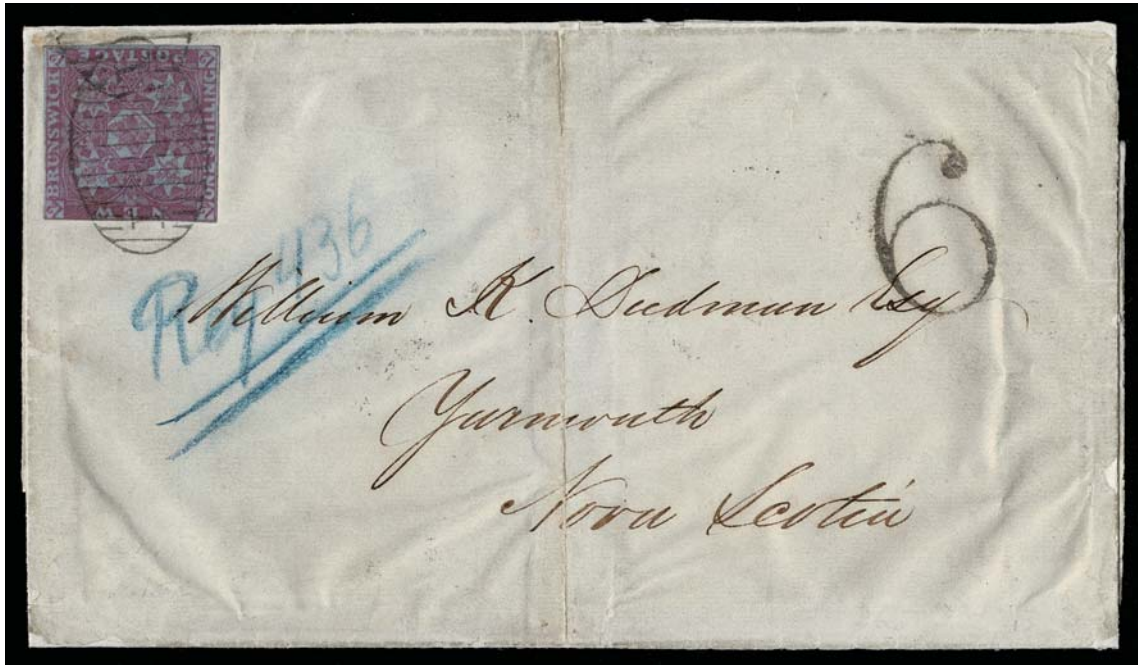 NEW BRUNSWICK POSTAGE ONE SHILLING
1
6
Reg 436
William K. Dudman Esq
Yarmouth
Nova Scotia